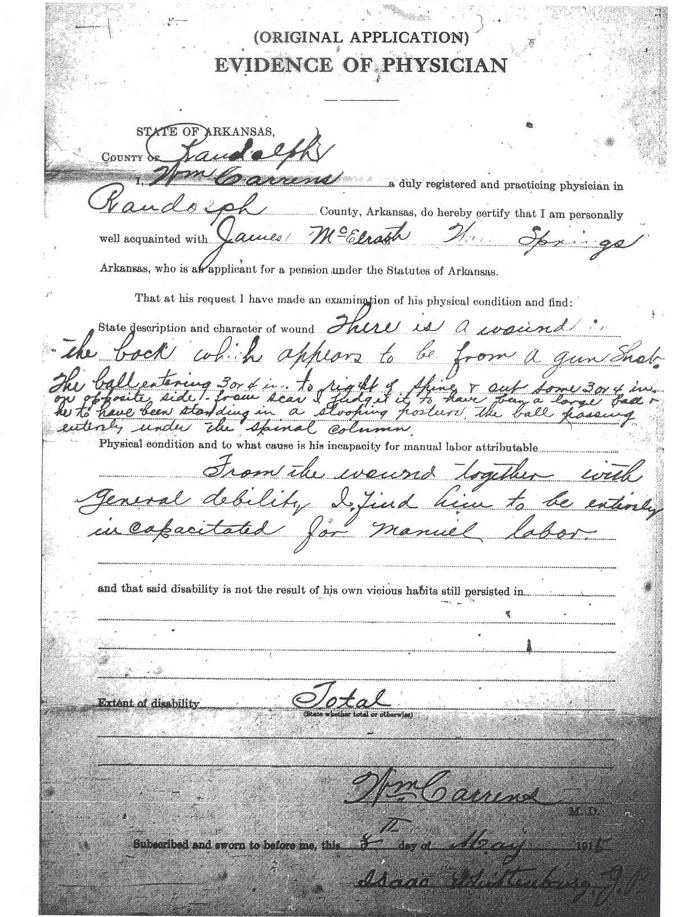 (ORIGINAL APPLICATION)
EVIDENCE OF PHYSICIAN
STATE OF ARKANSAS,
COUNTY OF Randolph
I, Wm Carrens a duly registered and practicing physician in
Randolph County, Arkansas, do hereby certify that I am personally
well acquainted with James McElrath Springs
Arkansas, who is an applicant for a pension under the Statutes of Arkansas.
That at his request I have made an examination of his physical condition and find:
State description and character of wound There is a wound
the back which appears to be from a gun Shot.
The ball entering 3 or 4 in. to right of spine & out some 3 or 4 in.
on opposite side. from scar I judge it to have been a large ball &
he to have been standing in a stooping posture, the ball passing
entirely under the spinal column.
Physical condition and to what cause is his incapacity for manual labor attributable
From the wound together with
General debility I find him to be entirely
incapacitated for manuel labor.
and that said disability is not the result of his own vicious habits still persisted in
Extent of disability Total
(State whether total or otherwise)
Wm Carrens
M. D.
Subscribed and sworn to before me, this 8 day of May 1915
Isaac Whittenburg J.P.